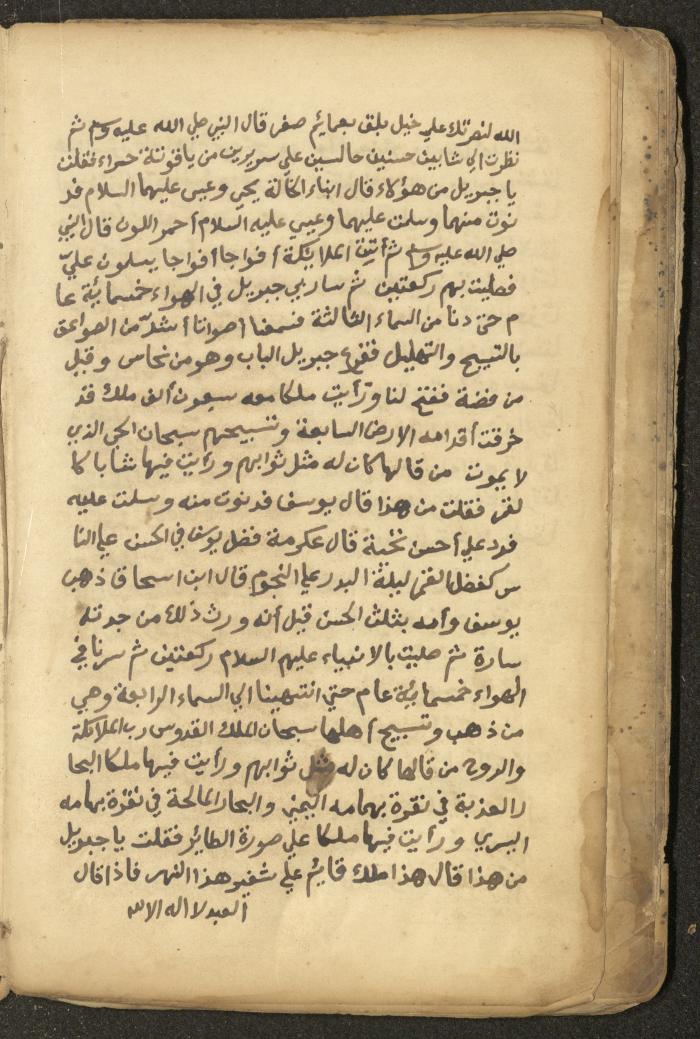 الله لنصرتك علي خيل بلق بعمايم صفر قال النبي صلي الله عليه وسلم ثم
نظرت الي شابين حسنين جالسين علي سريرين من ياقوتة حمراء فقلت
يا جبريل من هؤلاء قال ابناء الخالة يحي وعيسي عليهما السلام فد
نوت منهما وسلمت عليهما وعيسي عليه السلام أحمر اللون قال النبي
صلي الله عليه وسلم ثم أتت الملايكة أفواجا أفواجا يسلمون عليّ
فصليت بهم ركعتين ثم سار بي جبريل في الهواء خمسمائة عا
م حتي دنا من السماء الثالثة فسمعنا أصواتا أشدّ من الصواعق
بالتسبيح والتهليل فقرع جبريل الباب وهو من نحاس وقيل
من فضة ففتح لنا ورأيت ملكا معه سبعون ألف ملك قد
خرقت أقدامه الارض السابعة وتسبيحهم سبحان الحي الذي
لا يموت من قالها كان له مثل ثوابهم ورأيت فيها شابا كا
لقمر فقلت من هذا قال يوسف فدنوت منه وسلمت عليه
فرد علي أحسن تحية قال عكرمة فضل يوسف في الحسن علي النا
س كفضل القمر ليلة البدر علي النجوم قال ابن اسحاق ذهب
يوسف وأمه بثلث الحسن قيل أنه ورث ذلك من جدته
سارة ثم صليت بالانبياء عليهم السلام ركعتين ثم سرنا في
الهواء خمسمائة عام حتي انتهينا الي السماء الرابعة وهي
من ذهب وتسبيح أهلها سبحان الملك القدوس رب الملائكة
والروح من قالها كان له مثل ثوابهم ورأيت فيها ملكا البحا
ر العذبة في نقرة بهامه اليمني والبحار المالحة في نقرة بهامه
اليسري ورأيت فيها ملكا علي صورة الطائر فقلت يا جبريل
من هذا قال هذا ملك قايم علي شفير هذا النهر فاذا قال
العبد لا اله الا الله